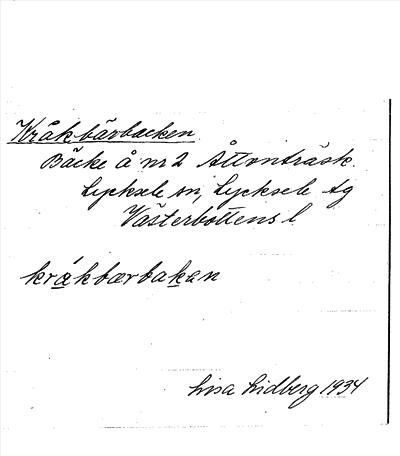 Kråkbärbacken
Bäcke å nr 2 Åttonträsk.
Lycksele sn, Lycksele tg
Västerbottens l
kråkbærbakan
Lisa Lidberg 1934